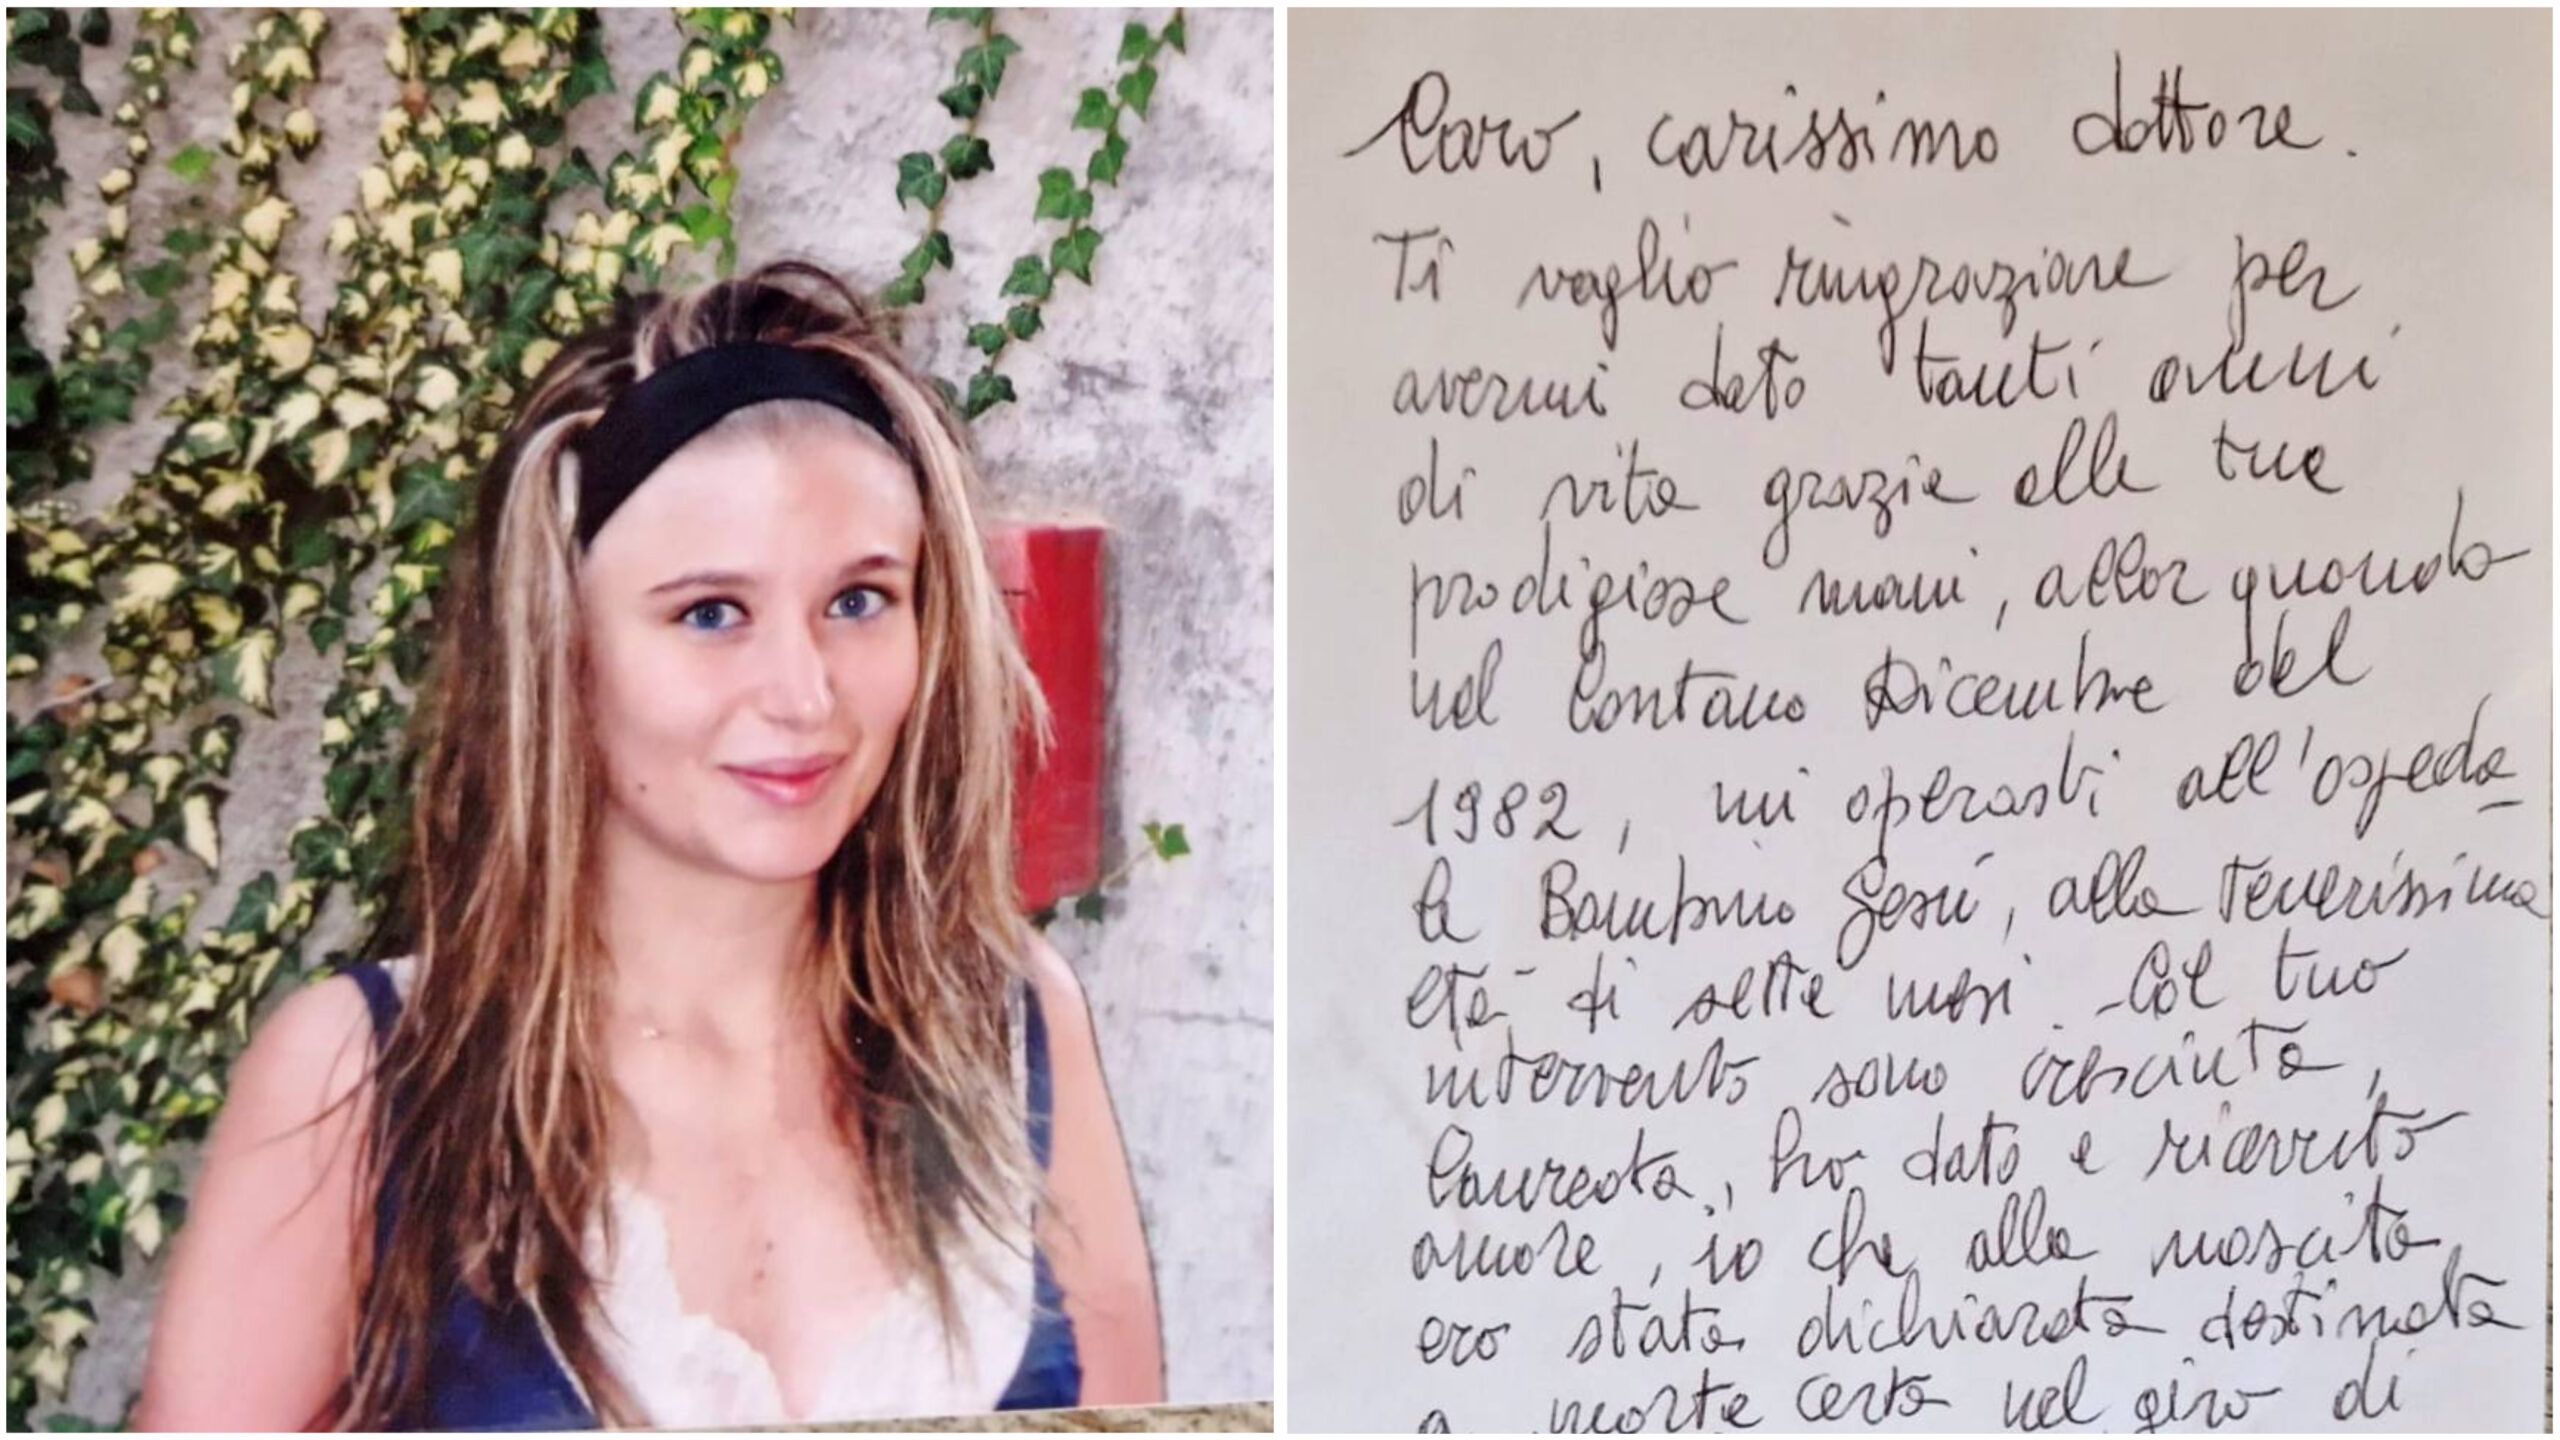 Caro, carissimo dottore.
Ti voglio ringraziare per
avermi dato tanti anni
di vita grazie alle tue
prodigiose mani, allor quando
nel lontano Dicembre del
1982, mi operasti all'ospeda_
le Bambino Gesù, alla tenerissima
età di sette mesi. Col tuo
intervento sono cresciuta,
laureata, ho dato e ricevuto
amore, io che alla nascita
ero stata dichiarata destinata
a morte certa nel giro di